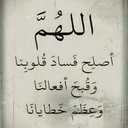 اللهُمَّ
أصلِح فَسادَ قُلوبِنا
وَقُبحَ أفعالَنا
وَعِظَمْ خَطايانَا